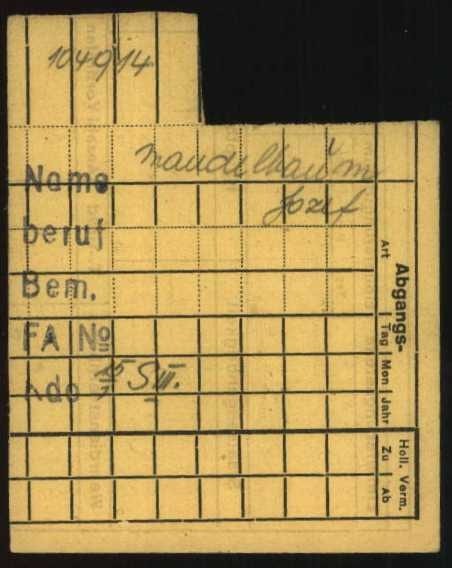 104914
Mandelbaum
Name
Jozef
beruf
Bem.
FA No
Kdo
Abgangs-
Art
Tag Mon Jahr
Holl. Verm.
Zu Ab